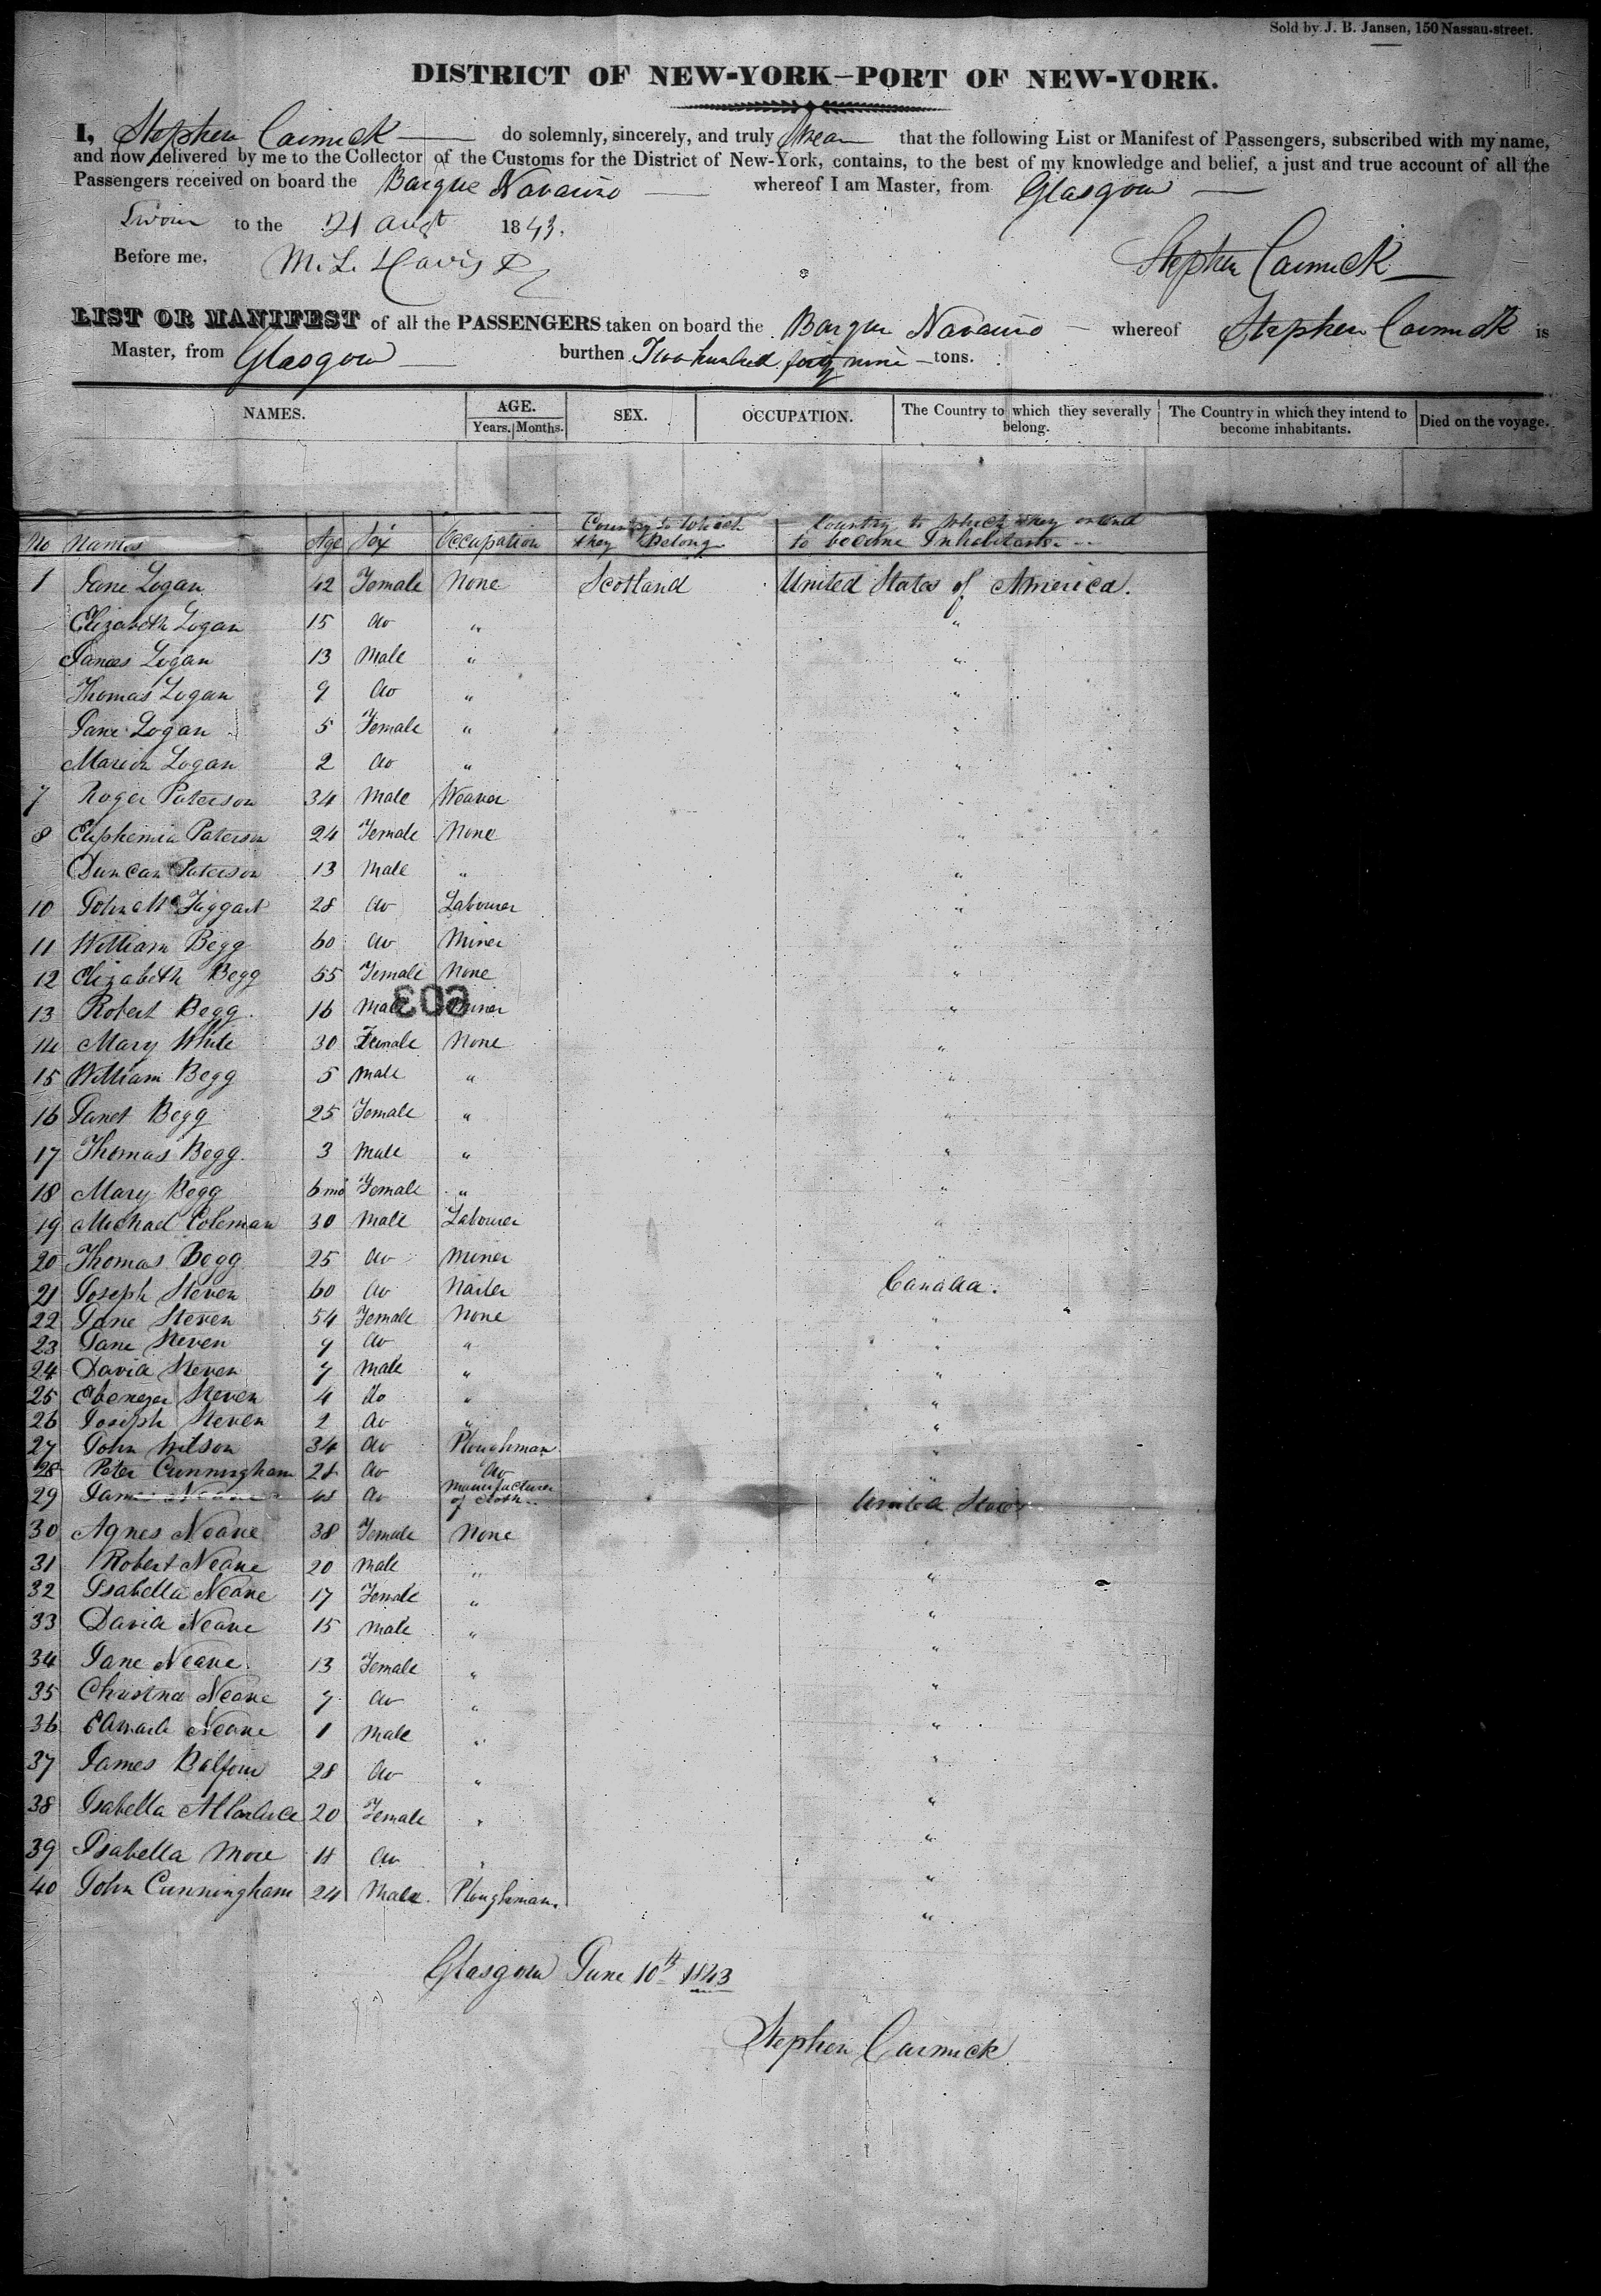 Sold by J. B. Jansen, 150 Nassau-street.
DISTRICT OF NEW-YORK—PORT OF NEW-YORK.
I, Stephen Carmick do solemnly, sincerely, and truly Swear that the following List or Manifest of Passengers, subscribed with my name,
and now delivered by me to the Collector of the Customs for the District of New-York, contains, to the best of my knowledge and belief, a just and true account of all the
Passengers received on board the Barque Navarino whereof I am Master, from Glasgow
Sworn to the 21 Augt 1843.
Before me, M. L. Davis
Stephen Carmick
LIST OR MANIFEST of all the PASSENGERS taken on board the Barque Navarino whereof Stephen Carmick is
Master, from Glasgow burthen Two hundred forty nine tons.
NAMES. AGE. Years. Months. SEX. OCCUPATION. The Country to which they severally belong. The Country in which they intend to become inhabitants. Died on the voyage.
No Names Age Sex Occupation Country to which they Belong Country to which they intend to become Inhabitants
1 Jane Logan 42 Female None Scotland United States of America.
Elizabeth Logan 15 do " "
James Logan 13 Male " "
Thomas Logan 9 do " "
Jane Logan 5 Female " "
Marion Logan 2 do " "
7 Roger Paterson 34 Male Weaver "
8 Euphemia Paterson 24 Female None "
Duncan Paterson 13 Male " "
10 John McTaggart 28 do Labourer "
11 William Begg 60 do Miner "
12 Elizabeth Begg 55 Female None "
603
13 Robert Begg. 16 Male Miner "
14 Mary White 30 Female None "
15 William Begg 5 Male " "
16 Janet Begg 25 Female " "
17 Thomas Begg. 3 Male " "
18 Mary Begg 6 mo Female " "
19 Michael Coleman 30 Male Labourer "
20 Thomas Begg 25 do Miner "
21 Joseph Steven 60 do Nailer Canada.
22 Jane Steven 54 Female None "
23 Jane Steven 9 do " "
24 David Steven 7 Male " "
25 Ebenezer Steven 4 do " "
26 Joseph Steven 2 do " "
27 John Wilson 34 do Ploughman "
28 Peter Cunningham 28 do do "
29 James Neave do Manufacturer of Cloth United States
30 Agnes Neave 38 Female None "
31 Robert Neave 20 Male " "
32 Isabella Neave 17 Female " "
33 David Neave 15 Male " "
34 Jane Neave. 13 Female " "
35 Christina Neave 7 do " "
36 Edward Neave 1 Male " "
37 James Balfour 28 do " "
38 Isabella 20 Female " "
39 Isabella More 18 do " "
40 John Cunningham 24 Male. Ploughman. "
Glasgow June 10th 1843
Stephen Carmick